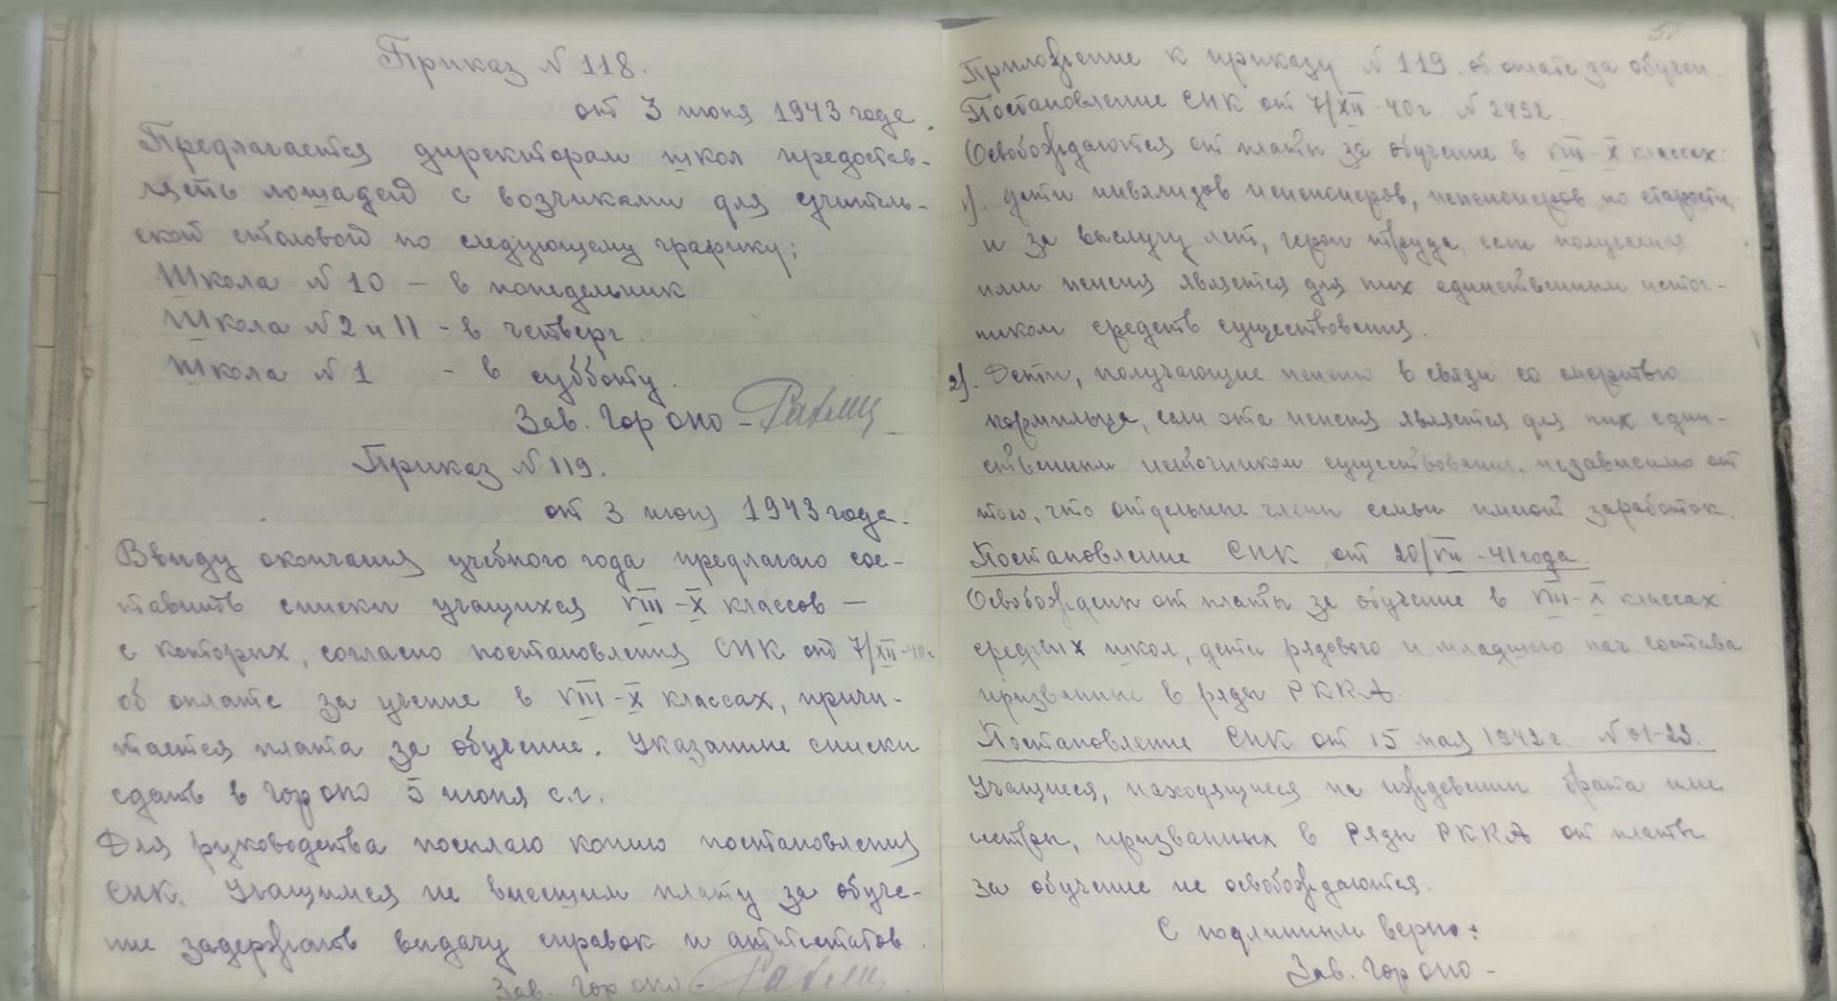 Приказ № 118.
от 3 июня 1943 года.
Предлагается директорам школ предостав-
лять лошадей с возчиками для учитель-
ской столовой по следующему графику:
Школа № 10 – в понедельник
Школа № 2 и 11 – в четверг
Школа № 1 – в субботу.
Зав. Гороно –
Приказ № 119.
от 3 июня 1943 года.
Ввиду окончания учебного года предлагаю сос-
тавить списки учащихся VIII–X классов –
с которых, согласно постановления СНК от 7/XII-40г.
об оплате за учение в VIII–X классах, причи-
тается плата за обучение. Указанные списки
сдать в Гороно 5 июня с.г.
Для руководства посылаю копию постановления
СНК. Учащимся не внесшим плату за обуче-
ние задержать выдачу справок и аттестатов.
Зав. Гороно –
51
Приложение к приказу № 119 об оплате за обучен.
Постановление СНК от 7/XII-40г. № 2452.
Освобождаются от платы за обучение в VIII–X классах:
1). дети инвалидов пенсионеров, пенсионеров по старости,
и за выслугу лет, герои труда, если
или пенсия является для них единственным источ-
ником средств существования.
2). Дети, получающие пенсию в связи со смертью
кормильца, если эта пенсия является для них един-
ственным источником существования, независимо от
того, что отдельные члены семьи имеют заработок.
Постановление СНК от 20/VII-41 года.
Освобождены от платы за обучение в VIII–X классах
средних школ, дети рядового и младшего нач. состава
призванные в ряды РККА.
Постановление СНК от 15 мая 1942 г. №
Учащиеся, находящиеся на иждевении брата или
сестры, призванных в Ряды РККА от платы
за обучение не освобождаются.
С подлинным верно:
Зав. Гороно –